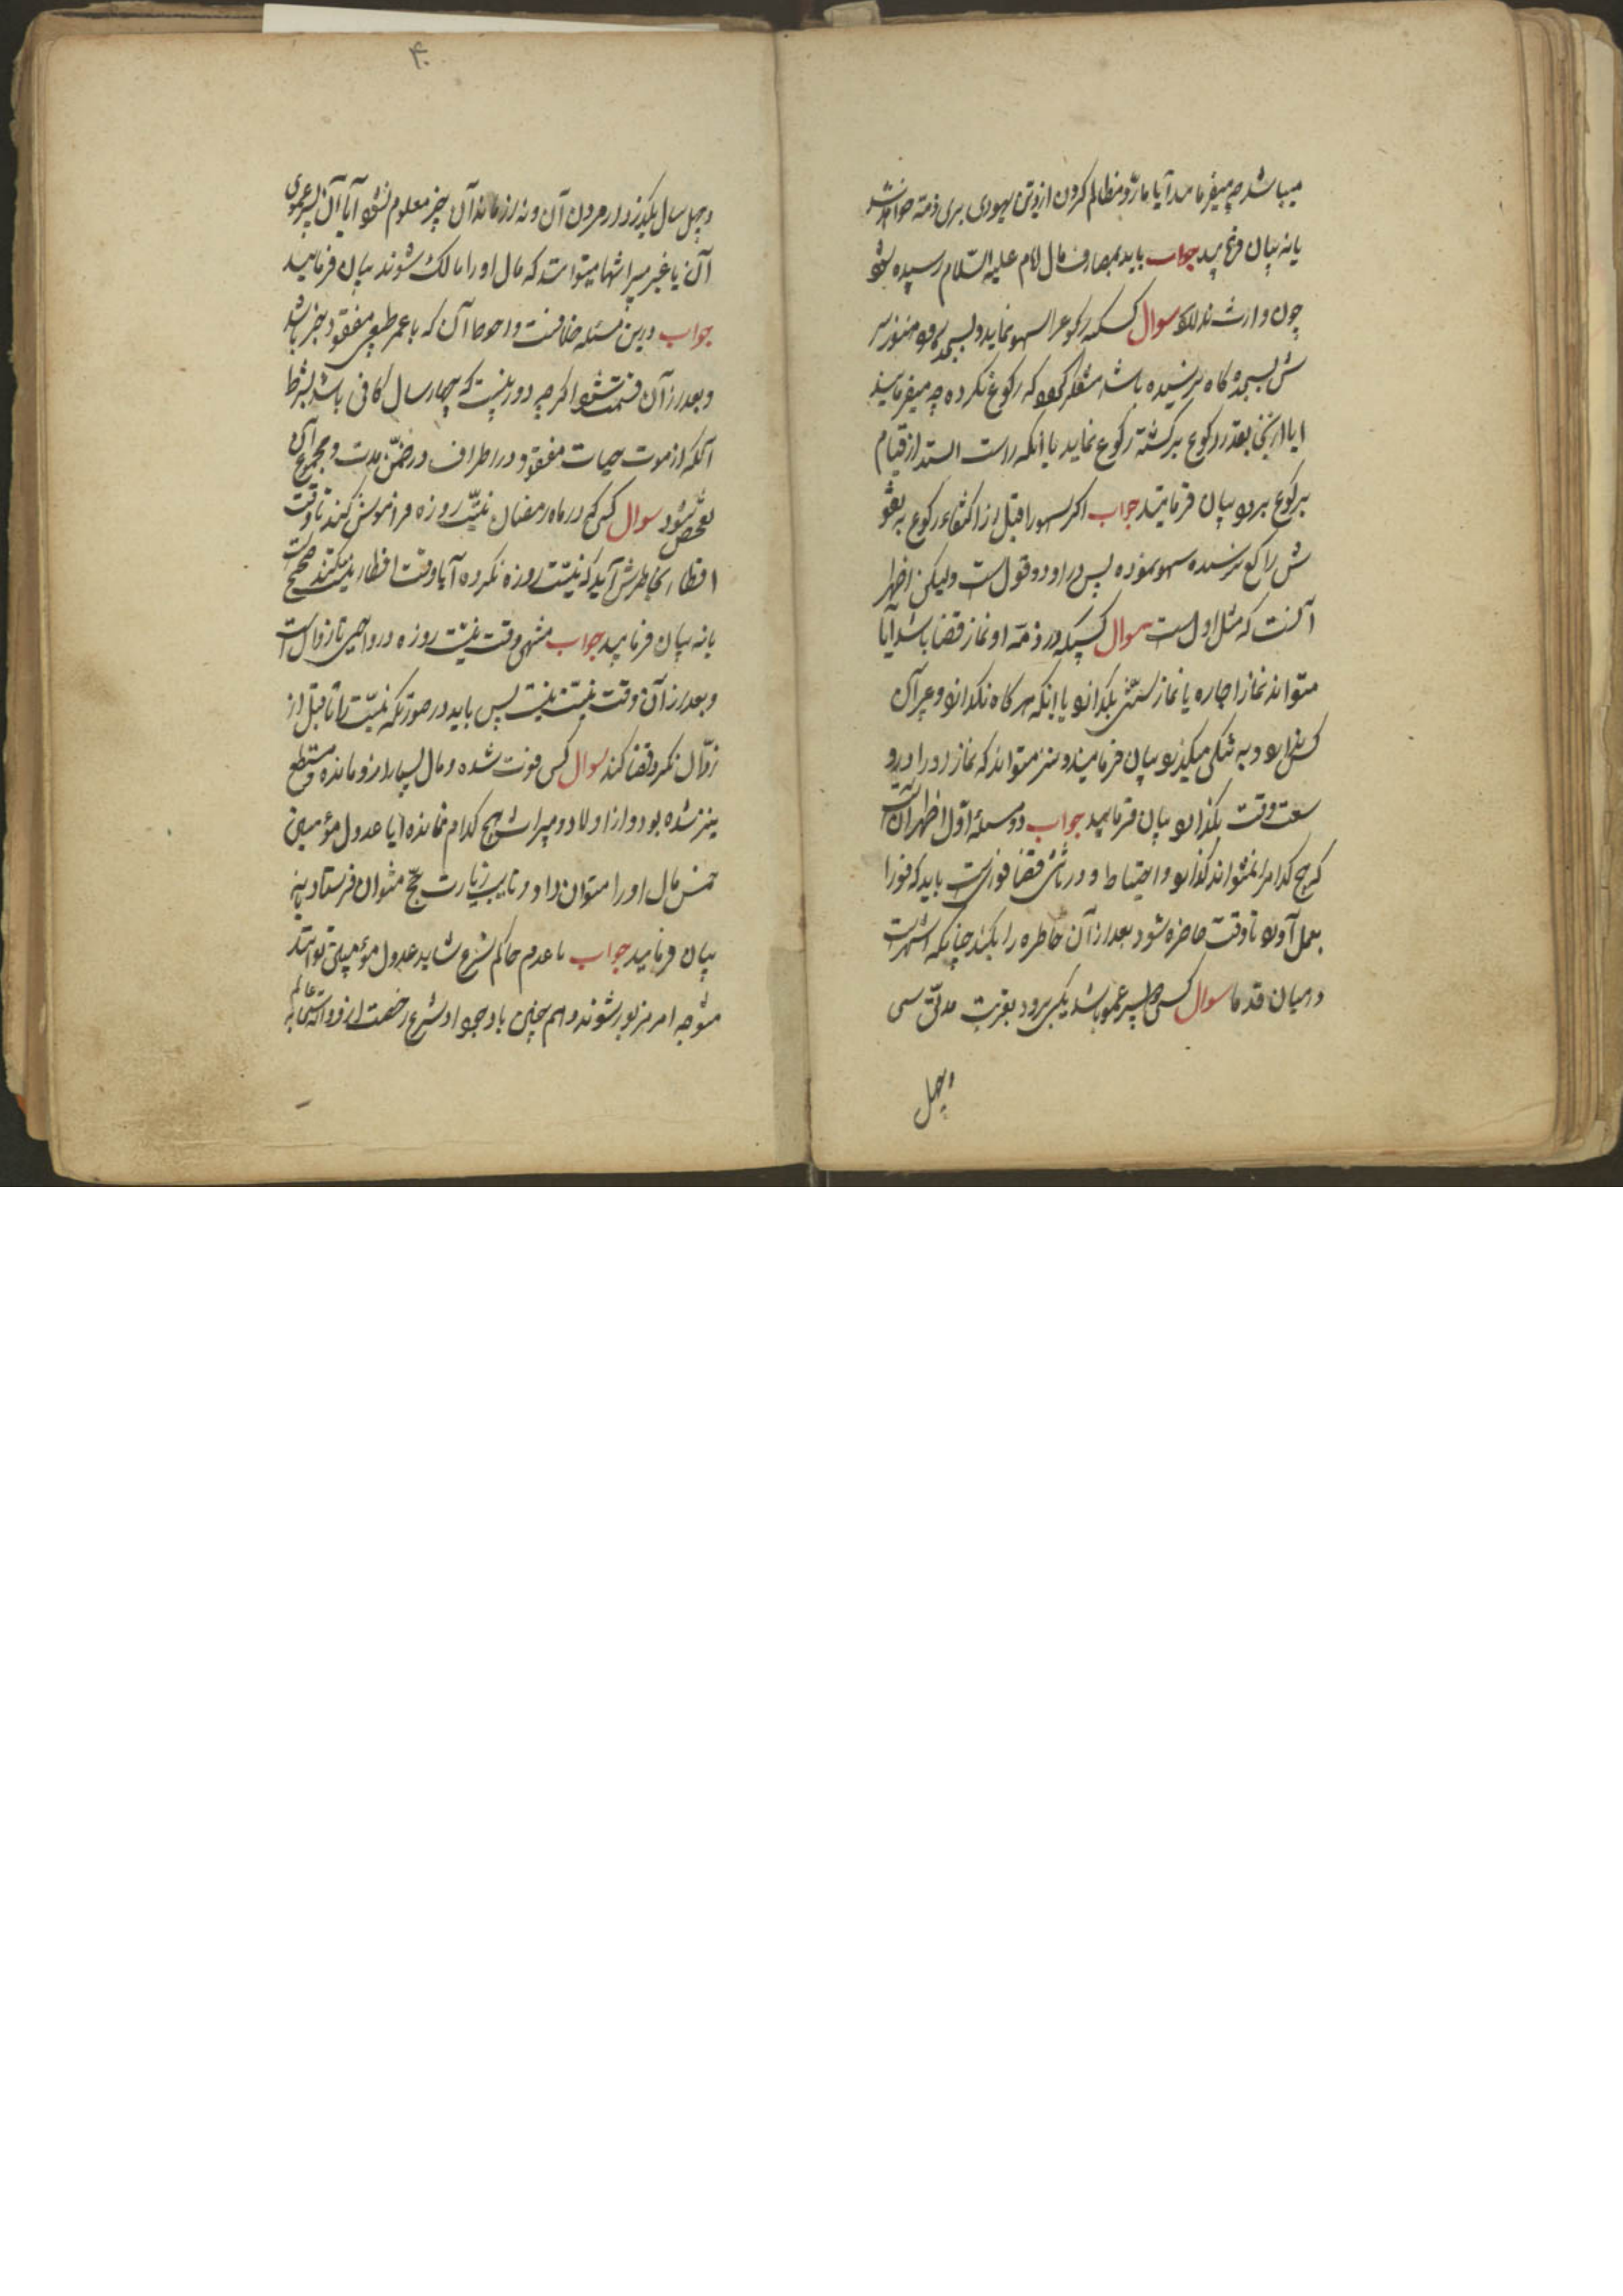 میباشد چه میفرمایند آیا مظالم کردن از وی یهودی بری ذمه خواهد شد
یا نه بیان فرمایید جواب باید بمصارف مال امام علیه السلام رسیده شود
چون وارث ندارد سوال کسیکه رکوع را سهو نماید و بسجده رود هنوز سر
ش بسجده کاه نرسیده باشد متفکر شود که رکوع نکرده چه میفرمایید
ایا از بقدر رکوع برکشته رکوع نماید یا انکه راست ایستد از قیام
برکوع برود بیان فرمایند جواب اکر سهو را قبل از رکوع
ش راکع نرسیده سهو نموده پس در او دو قول است ولیکن اظهر
آنست که مثل اول است سوال کسیکه در ذمه او نماز قضا باشد آیا
میتواند نماز اجاره یا نماز سنتی بکذارد یا اینکه هر کاه نکذارد
و به تنکی میکذرد بیان فرمایند و نیز میتواند که نماز را در
سعت وقت بکذارد بیان فرمایید جواب در مسئله اول اظهر آنست
که هیچ کدام را نمیتواند کذارد و احتیاط و در ثانی قضا فوریست باید که فورا
بعمل آورد تا وقت حاضره شود بعد از آن حاضره را بکند چنانکه اشهر است
در میان قدما سوال کسی را پسر عمو باشد یکی برود بغربت مدتی سی
و چهل
۴۰
و چهل سال بکذرد و از مردن آن و نه از زماندان چیز معلوم نشود آیا آن پسر عموی
آن یا غیر میراثها میتوانست که مال او را مالک شوند بیان فرمایید
جواب درین مسئله خلافست و احوط آن که با عمر طبیعی مفقود بخبر باشد
و بعد از آن قسمت شود اکر چه دور نیست که چهار سال کافی باشد بشرط
آنکه از موت حیات مفقود در اطراف در ضمن مدت و مجموع آن
تفحص شود سوال کسی که در ماه رمضان نیت روزه فراموش کند تا وقت
افطار بخاطرش آید که نیت روزه نکرده آیا وقت افطار نیت میکند صحیح است
یا نه بیان فرمایید جواب منتهی وقت نیت روزه در واجبی تا زوال است
و بعد از آن وقت نیت نیست پس باید در صورتیکه نیت را تا قبل از
زوال نکرد قضا کند سوال کسی فوت شده و مال بسیار از او مانده و مستطیع
نیز شده بود و از اولاد و میراث هیچ کدام نمانده آیا عدول مؤمنین
خمس مال او را میتوان داد و نایب زیارت حج میتوان فرستاد یا نه
بیان فرمایید جواب با عدم حاکم شرع شاید عدول مؤمنین توانند
متوجه امر مزبور شوند و هم چنین با وجود او شرع رخصت از او